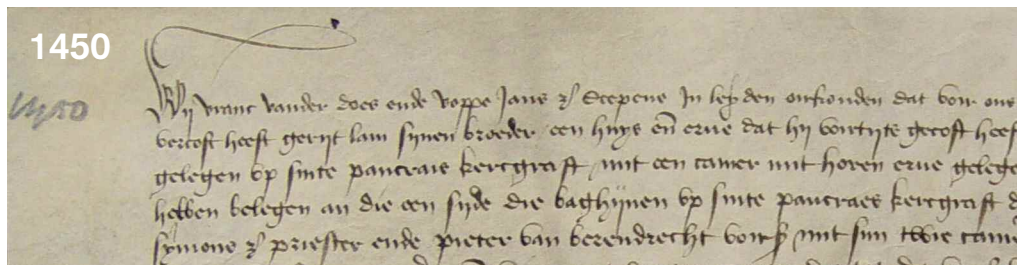 1450
1450
Wij vranc vander does ende voppe Jans zˢ Scepene In leyden oirkonden dat voir ons
vercoft heeft gerijt lam sijnen broeder een huys eñ erue dat hij voirtijts gecoft heef
gelegen vp sinte pancraes kercgraft mit een camer mit horen erue gelege
hebben belegen an die een sijde die baghijnen vp sinte pancraes kercgraft d
symons zˢ priester ende pieter van berendrecht voirsˢ mit sijn twie came